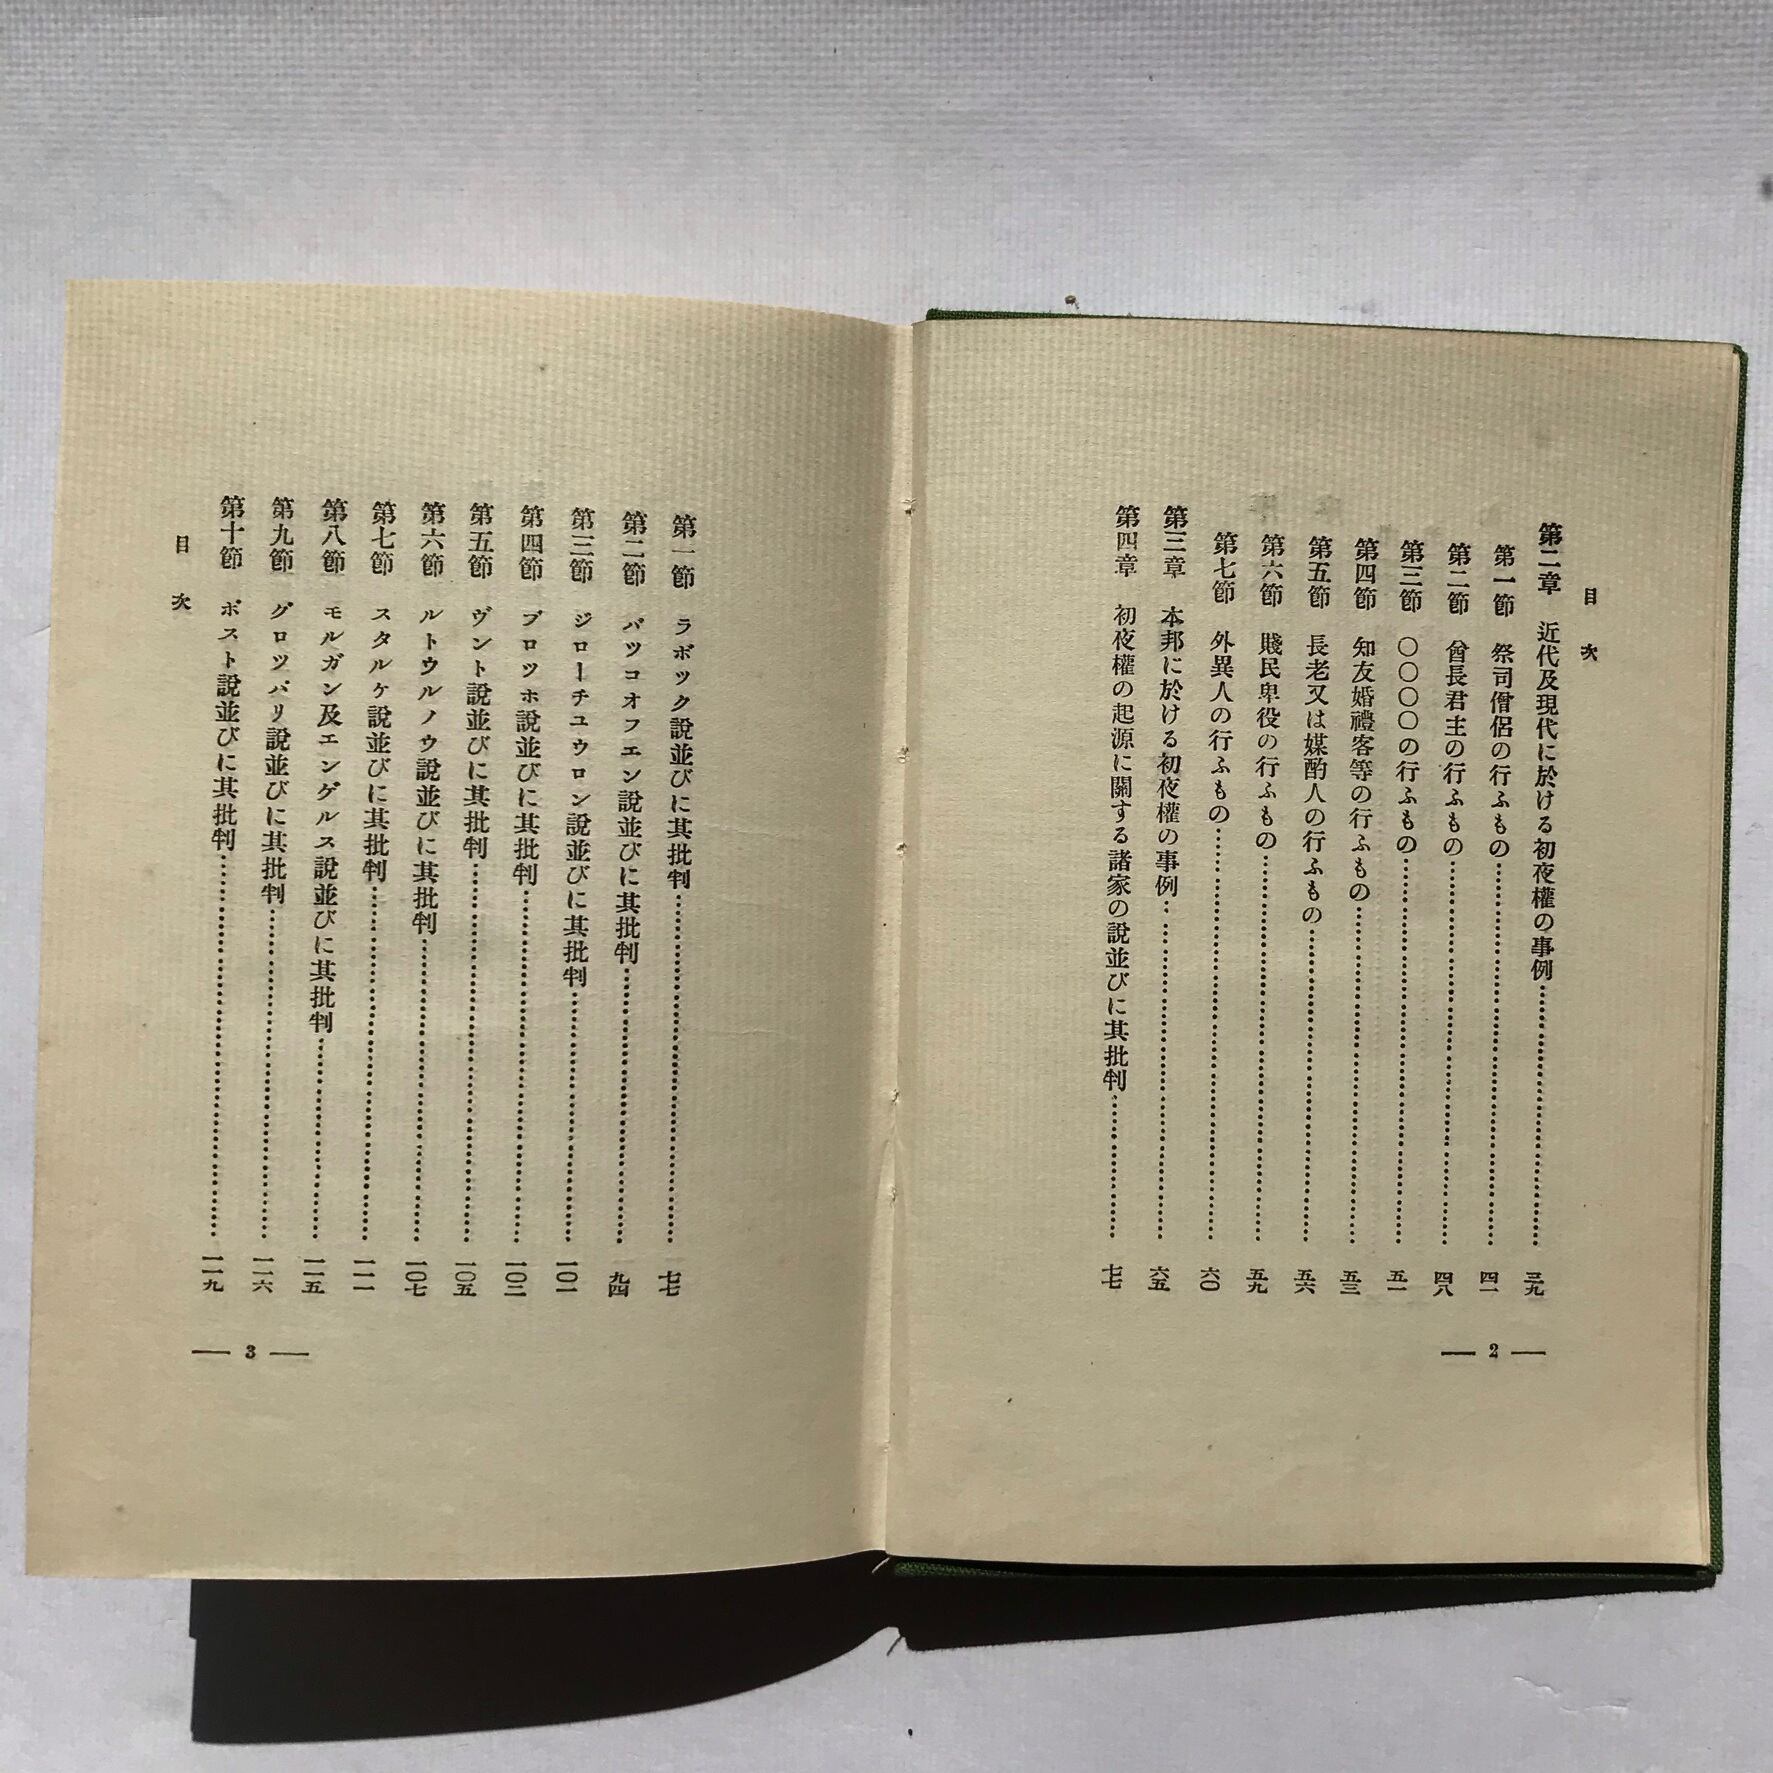 目次
第二章　近代及現代に於ける初夜權の事例……三九
第一節　祭司僧侶の行ふもの……四一
第二節　酋長君主の行ふもの……四八
第三節　〇〇〇〇の行ふもの……五一
第四節　知友婚禮客等の行ふもの……五三
第五節　長老又は媒酌人の行ふもの……五六
第六節　賤民卑役の行ふもの……五九
第七節　外異人の行ふもの……六〇
第三章　本邦に於ける初夜權の事例……六五
第四章　初夜權の起源に關する諸家の說並びに其批判……七七
— 2 —
第一節　ラボック說並びに其批判……七七
第二節　バツコオフエン說並びに其批判……九四
第三節　ジローチユウロン說並びに其批判……一〇一
第四節　ブロツホ說並びに其批判……一〇三
第五節　ヴント說並びに其批判……一〇五
第六節　ルトウルノウ說並びに其批判……一〇七
第七節　スタルケ說並びに其批判……一一一
第八節　モルガン及エンゲルス說並びに其批判……一一五
第九節　グロツパリ說並びに其批判……一一六
第十節　ポスト說並びに其批判……一一九
目次
— 3 —